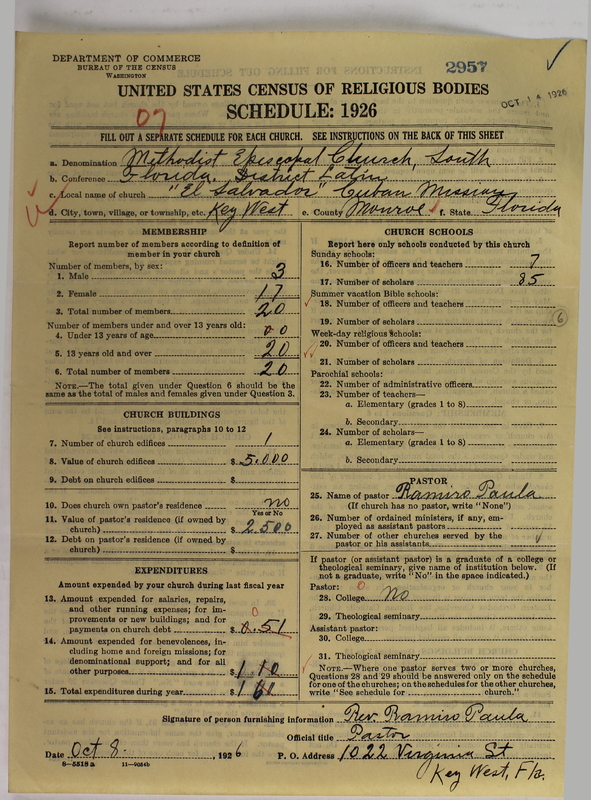 DEPARTMENT OF COMMERCE
BUREAU OF THE CENSUS
WASHINGTON
2957
OCT 14 1926
UNITED STATES CENSUS OF RELIGIOUS BODIES
SCHEDULE: 1926
07
FILL OUT A SEPARATE SCHEDULE FOR EACH CHURCH. SEE INSTRUCTIONS ON THE BACK OF THIS SHEET
a. Denomination Methodist Episcopal Church, South
b. Conference Florida. District Latin
c. Local name of church "El Salvador" Cuban Mission
d. City, town, village, or township, etc. Key West e. County Monroe f. State Florida
MEMBERSHIP
Report number of members according to definition of
member in your church
Number of members, by sex:
1. Male 3
2. Female 17
3. Total number of members 20
Number of members under and over 13 years old:
4. Under 13 years of age 00
5. 13 years old and over 20
6. Total number of members 20
NOTE.—The total given under Question 6 should be
same as the total of males and females given under Question 3.
CHURCH BUILDINGS
See instructions, paragraphs 10 to 12
7. Number of church edifices 1
8. Value of church edifices $ 5.000
9. Debt on church edifices $
10. Does church own pastor's residence no
Yes or No
11. Value of pastor's residence (if owned by
church) $ 2500
12. Debt on pastor's residence (if owned by
church) $
EXPENDITURES
Amount expended by your church during last fiscal year
13. Amount expended for salaries, repairs,
and other running expenses; for im-
provements or new buildings; and for
payments on church debt $ 51
14. Amount expended for benevolences, in-
cluding home and foreign missions; for
denominational support; and for all
other purposes $
15. Total expenditures during year $
CHURCH SCHOOLS
Report here only schools conducted by this church
Sunday schools:
16. Number of officers and teachers 7
17. Number of scholars 85
Summer vacation Bible schools:
18. Number of officers and teachers
19. Number of scholars
6
Week-day religious schools:
20. Number of officers and teachers
21. Number of scholars
Parochial schools:
22. Number of administrative officers
23. Number of teachers—
a. Elementary (grades 1 to 8)
b. Secondary
24. Number of scholars—
a. Elementary (grades 1 to 8)
b. Secondary
PASTOR
25. Name of pastor Ramiro Paula
(If church has no pastor, write "None")
26. Number of ordained ministers, if any, em-
ployed as assistant pastors
27. Number of other churches served by the
pastor or his assistants
If pastor (or assistant pastor) is a graduate of a college or
theological seminary, give name of institution below. (If
not a graduate, write "No" in the space indicated.)
Pastor:
28. College No
29. Theological seminary
Assistant pastor:
30. College
31. Theological seminary
NOTE.—Where one pastor serves two or more churches,
Questions 28 and 29 should be answered only on the schedule
for one of the churches; on the schedules for the other churches,
write "See schedule for church."
Signature of person furnishing information Rev. Ramiro Paula
Official title Pastor
Date Oct 8, 1926 P. O. Address 1022 Virginia St
8—5518 a 11—9054b
Key West, Fla.